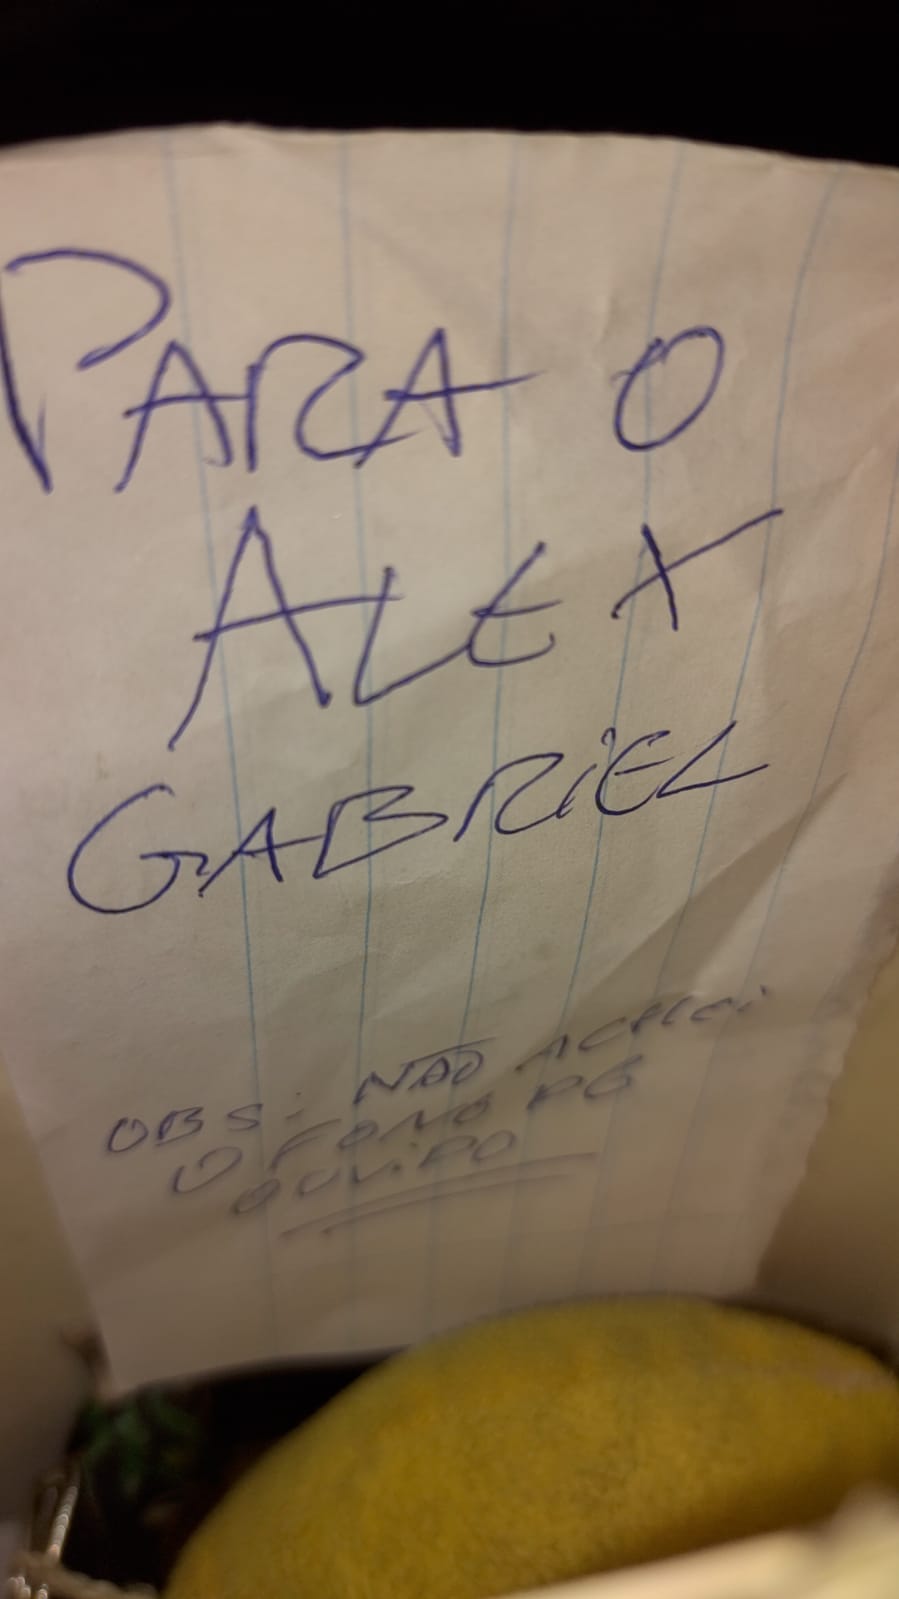 PARA O
ALEX
GABRIEL
OBS: NÃO ACHEI
O FONO DE
OUVIDO